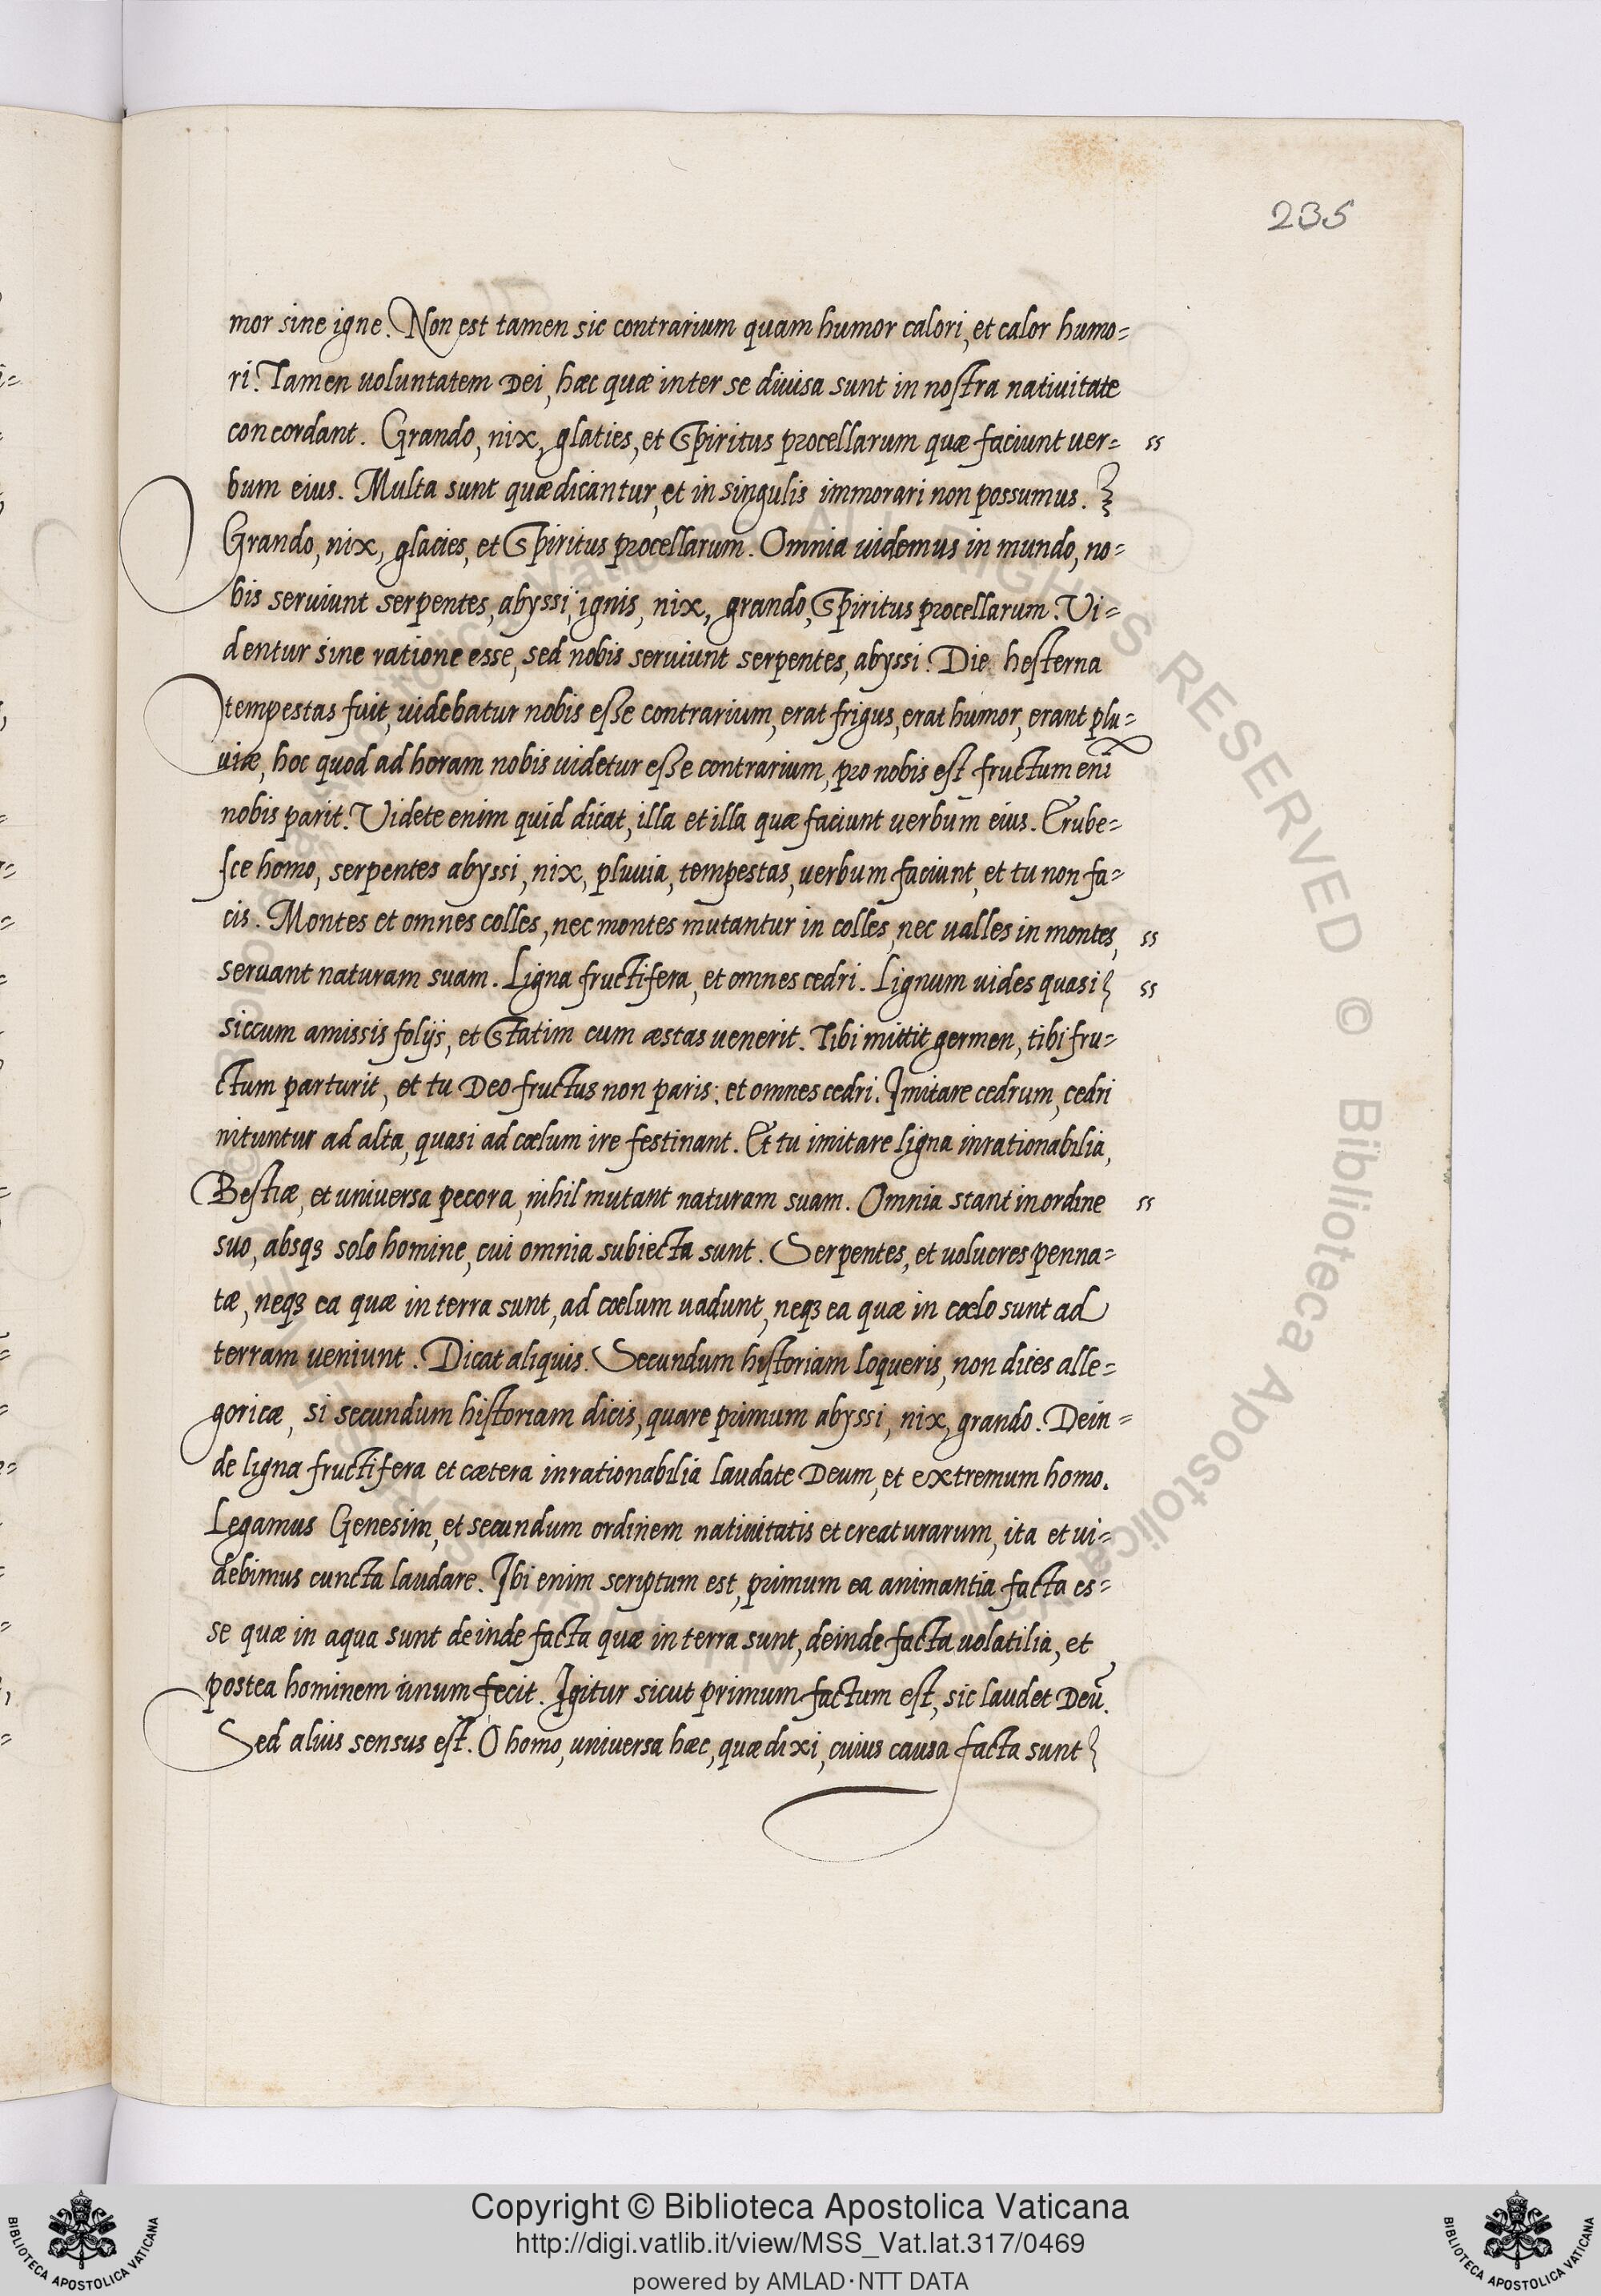 235
mor sine igne. Non est tamen sic contrarium quam humor calori, et calor humo=
ri. Tamen uoluntatem Dei, hæc quæ inter se diuisa sunt in nostra natiuitate
concordant. Grando, nix, glaties, et Spiritus procellarum quæ faciunt uer= ss
bum eius. Multa sunt quæ dicantur, et in singulis immorari non possumus.
Grando, nix, glacies, et Spiritus procellarum. Omnia uidemus in mundo, no=
bis seruiunt serpentes, abyssi, ignis, nix, grando, Spiritus procellarum. Vi=
dentur sine ratione esse, sed nobis seruiunt serpentes, abyssi. Die hesterna
tempestas fuit, uidebatur nobis esse contrarium, erat frigus, erat humor, erant plu=
uiæ, hoc quod ad horam nobis uidetur esse contrarium, pro nobis est fructum eni̅
nobis parit. Videte enim quid dicat, illa et illa quæ faciunt uerbum eius. Erube=
sce homo, serpentes abyssi, nix, pluuia, tempestas, uerbum faciunt, et tu non fa=
cis. Montes et omnes colles, nec montes mutantur in colles, nec ualles in montes, ss
seruant naturam suam. Ligna fructifera, et omnes cedri. Lignum uides quasi ss
siccum amissis folijs, et Statim cum æstas uenerit. Tibi mittit germen, tibi fru=
ctum parturit, et tu Deo fructus non paris: et omnes cedri. Imitare cedrum, cedri
nituntur ad alta, quasi ad cœlum ire festinant. Et tu imitare ligna inrationabilia,
Bestiæ, et universa pecora, nihil mutant naturam suam. Omnia stant in ordine ss
suo, absqꝫ solo homine, cui omnia subiecta sunt. Serpentes, et uolucres penna=
tæ, neqꝫ ea quæ in terra sunt, ad cœlum uadunt, neqꝫ ea quæ in cœlo sunt ad
terram ueniunt. Dicat aliquis. Secundum historiam loqueris, non dices alle=
goricæ, si secundum historiam dicis, quare primum abyssi, nix, grando. Dein=
de ligna fructifera et cætera inrationabilia laudate Deum, et extremum homo.
Legamus Genesim, et secundum ordinem natiuitatis et creaturarum, ita et ui=
debimus cuncta laudare. Ibi enim scriptum est, primum ea animantia facta es=
se quæ in aqua sunt deinde facta quæ in terra sunt, deinde facta uolatilia, et
postea hominem unum fecit. Igitur sicut primum factum est, sic laudet Deu̅.
Sed alius sensus est. O homo, universa hæc, quæ dixi, cuius causa facta sunt
Copyright © Biblioteca Apostolica Vaticana
http://digi.vatlib.it/view/MSS_Vat.lat.317/0469
powered by AMLAD·NTT DATA
BIBLIOTECA APOSTOLICA VATICANA
BIBLIOTECA APOSTOLICA VATICANA